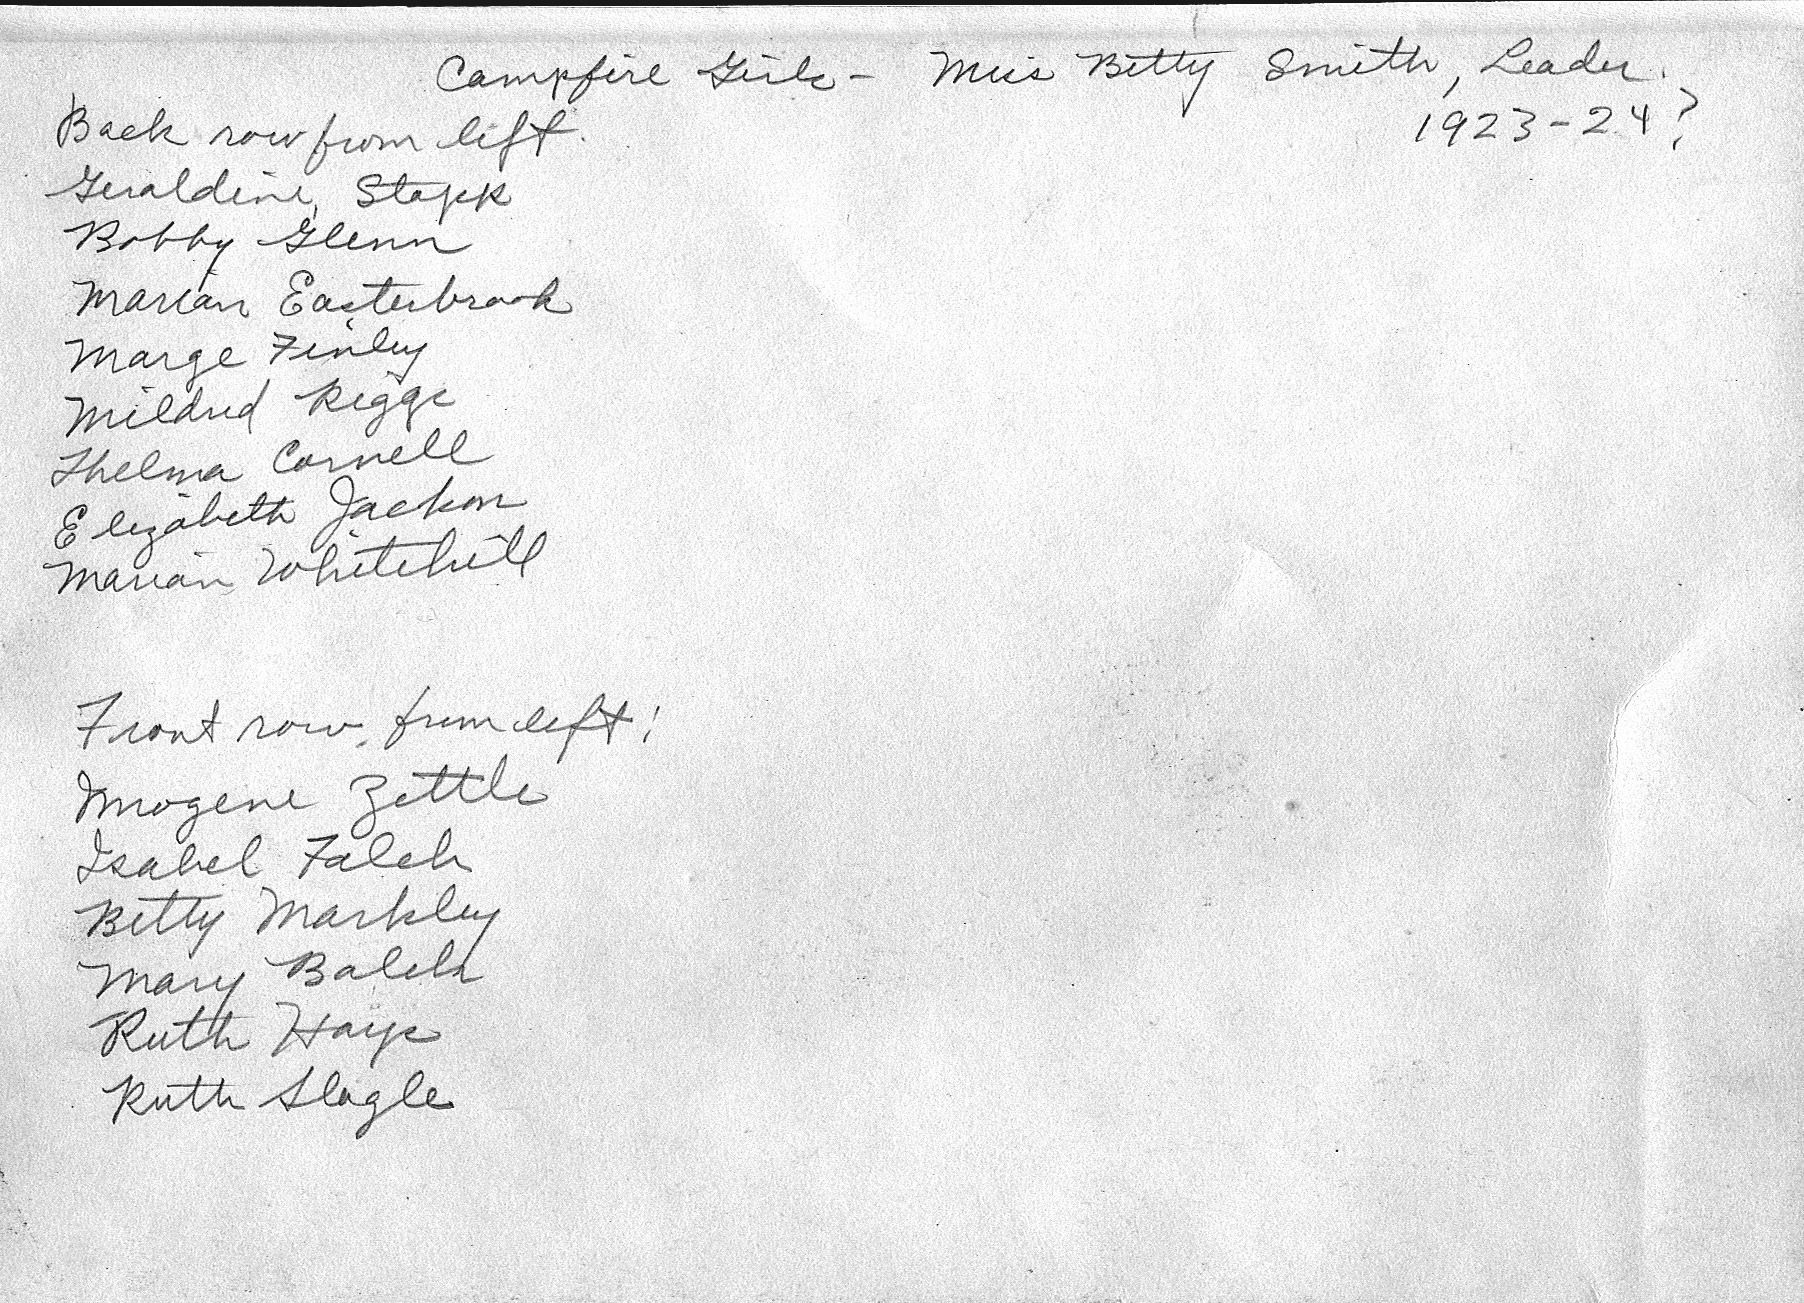 Campfire Girls - Miss Betty Smith, Leader.
1923-24?
Back row from left.
Geraldine Stapk
Bobby Glenn
Marian Easterbrook
Marge Finley
Mildred Riggs
Thelma Cornell
Elizabeth Jackson
Marian Whitehill
Front row, from left:
Imogene Zettle
Isabel Falch
Betty Markley
Mary Balch
Ruth Hays
Ruth Slagle